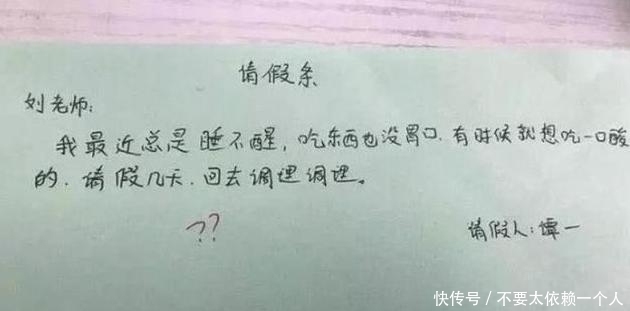 请假条
刘老师:
我最近总是睡不醒,吃东西也没胃口.有时候就想吃一口酸
的.请假几天.回去调理调理。
??
请假人:谭一
快传号/不要太依赖一个人